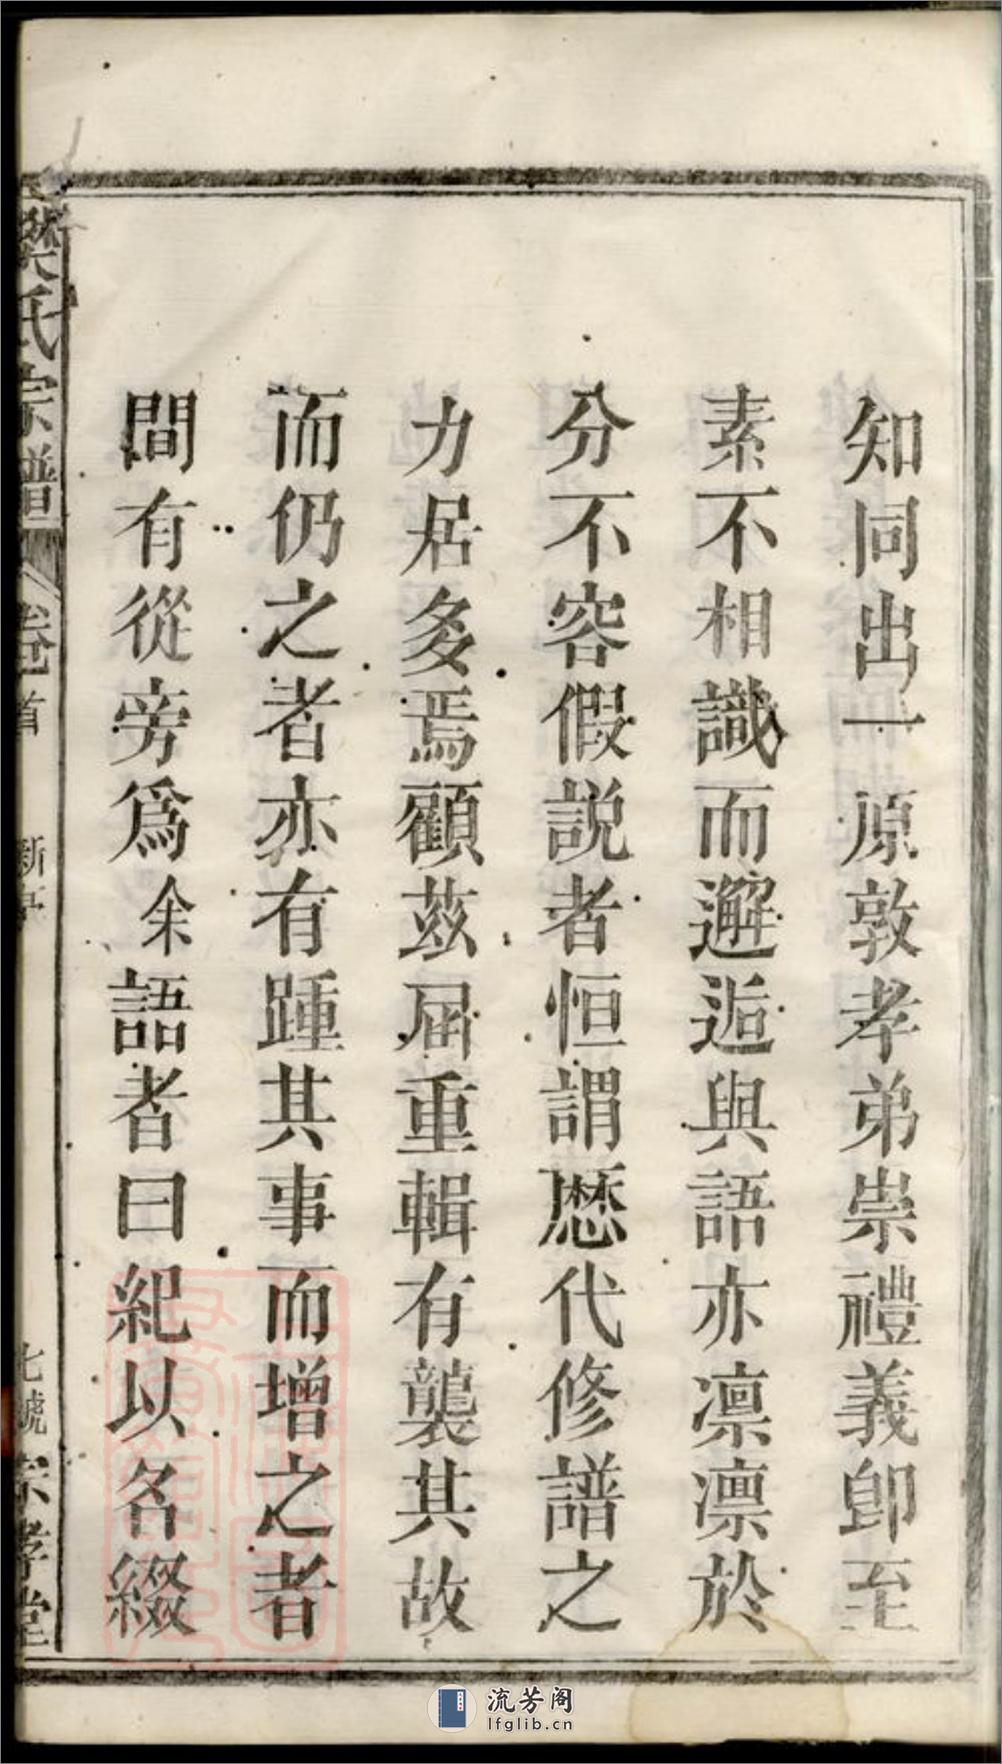 知同出一原敦孝弟崇禮義卽至
素不相識而邂逅與語亦凛凛於
分不容假説者恒謂歴代修譜之
力居多焉顧茲屆重輯有襲其故
而仍之者亦有踵其事而增之者
間有從旁爲余語者曰紀以名綴
樊氏宗譜
卷首
新亭
七號
孝堂
流芳阁
lfglib.cn